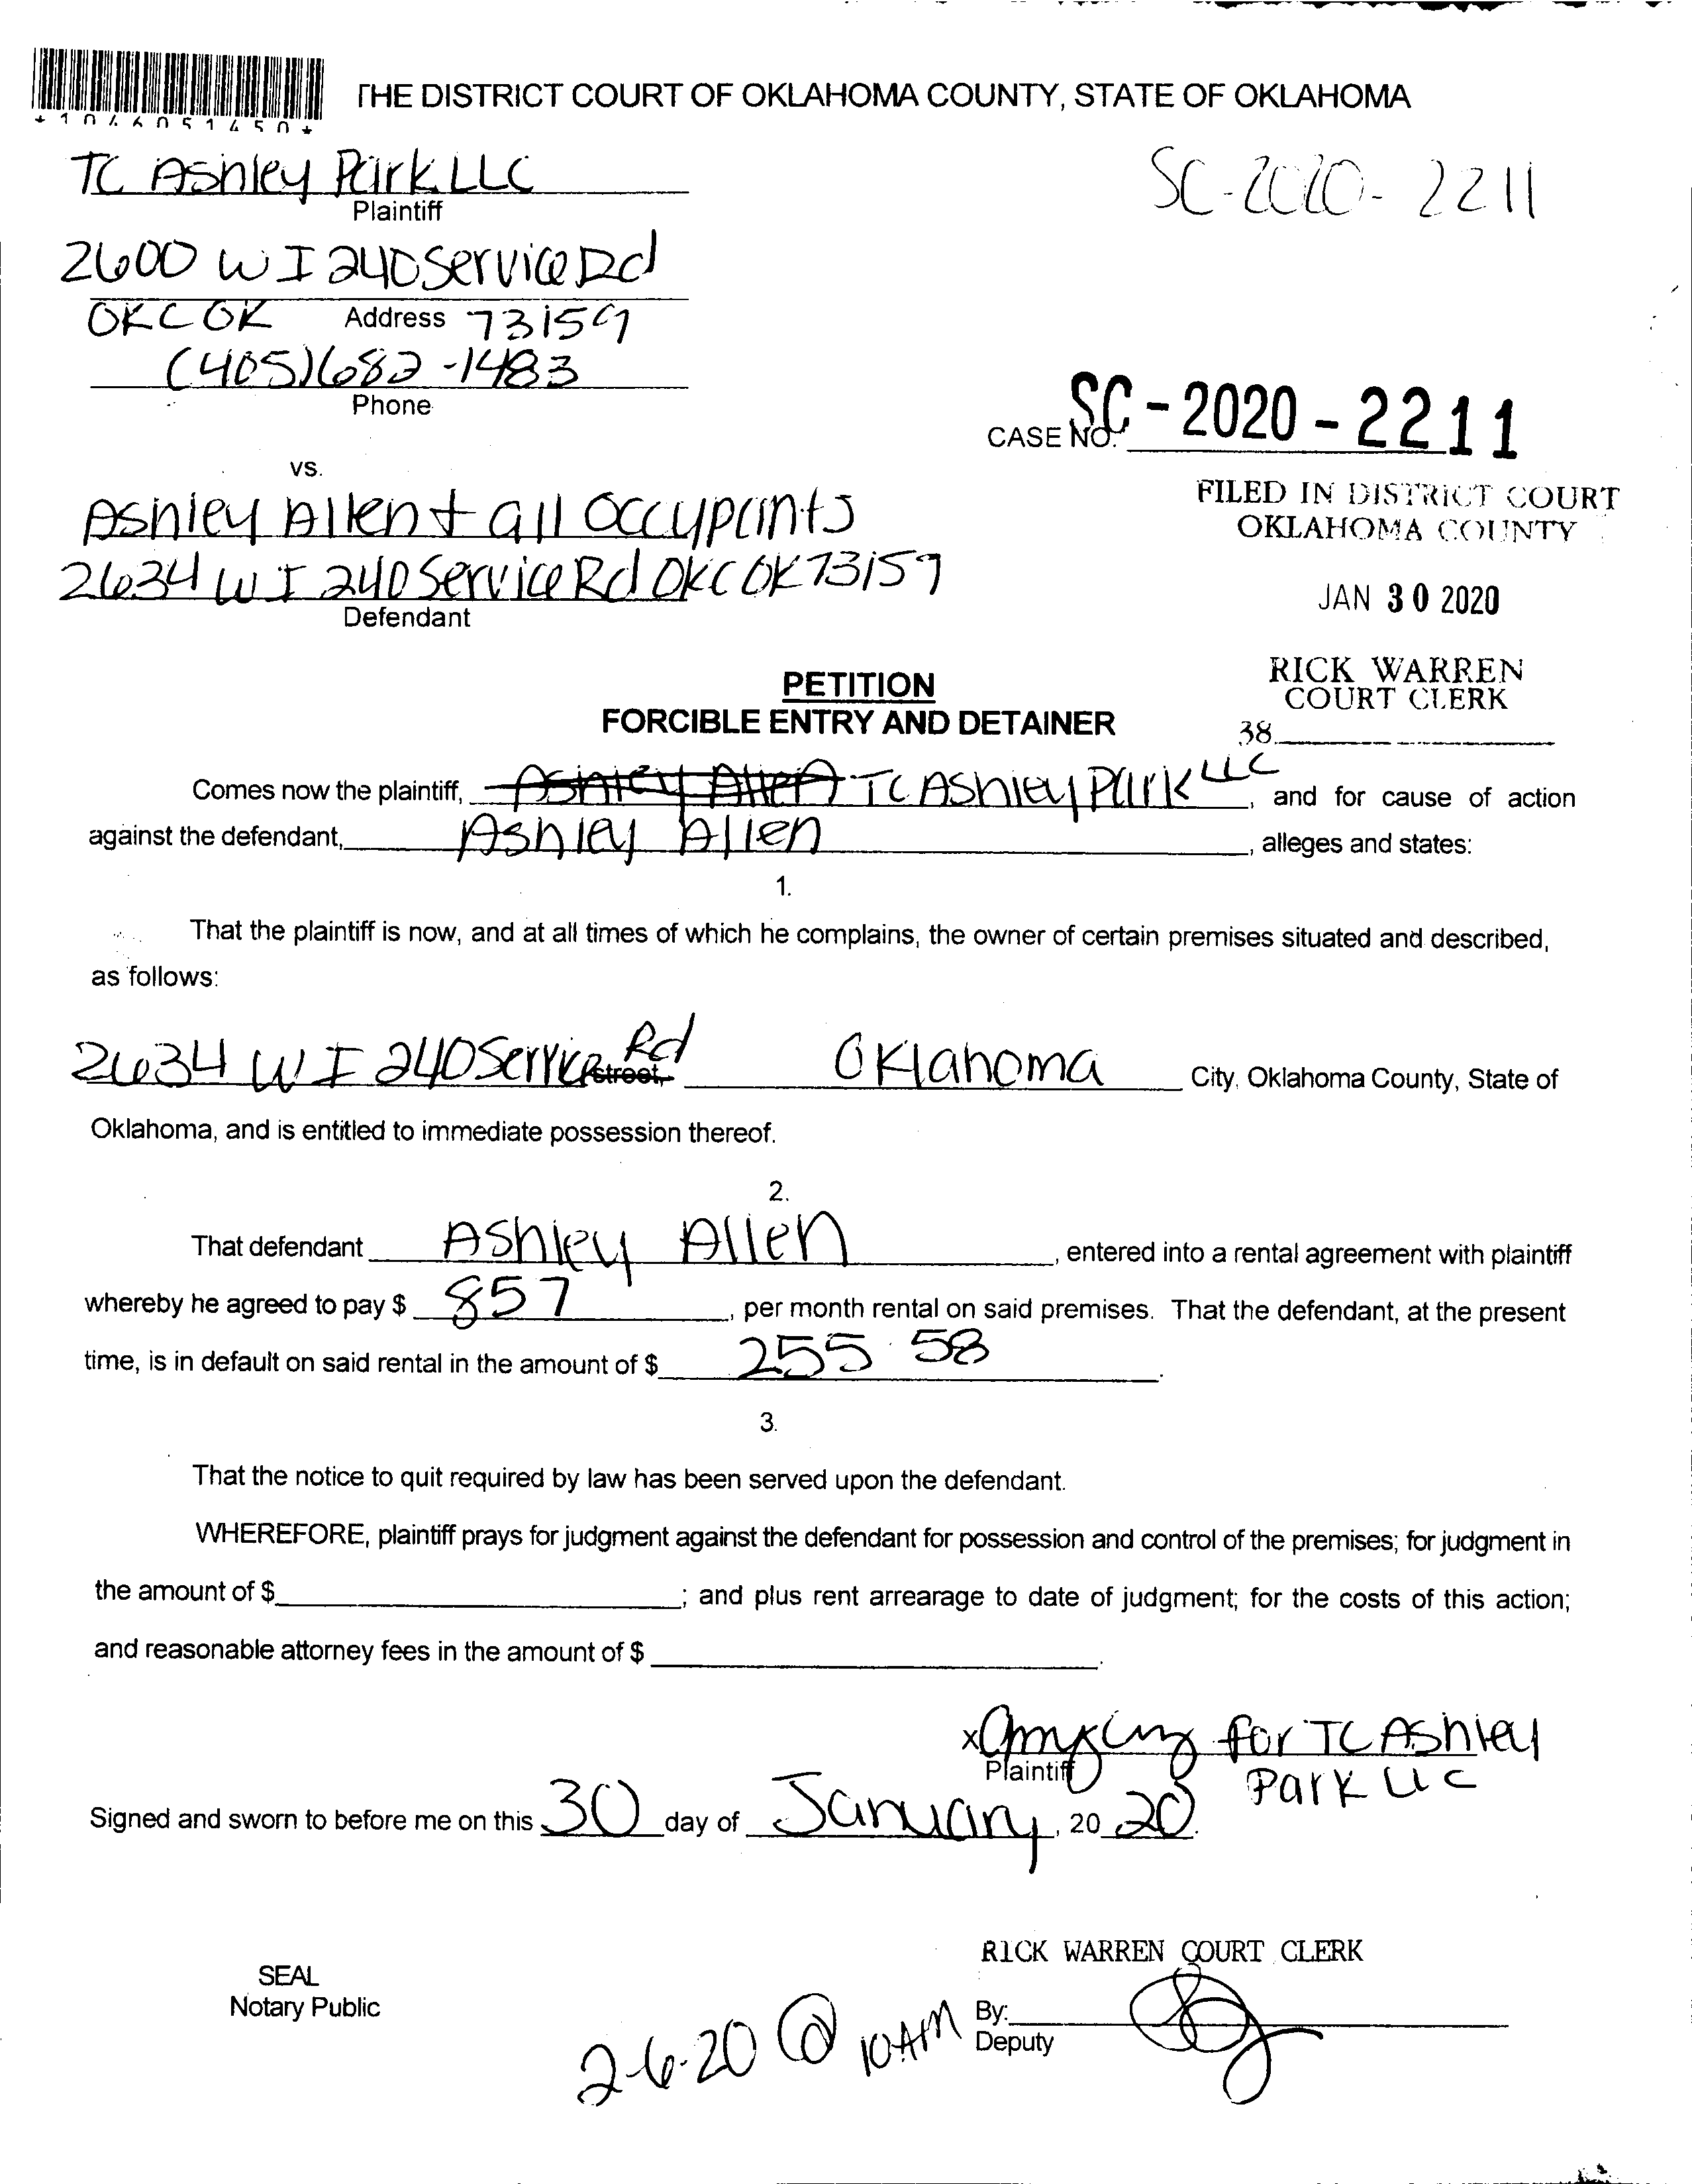 *1046051450*
THE DISTRICT COURT OF OKLAHOMA COUNTY, STATE OF OKLAHOMA
TC Ashley Park LLC
Plaintiff
SC-2020-2211
2600 W I 240 Service Rd
OKC OK Address 73159
(405)682-1483
Phone
CASE NO. SC-2020-2211
vs.
FILED IN DISTRICT COURT
OKLAHOMA COUNTY
Ashley Allen + all occupants
2634 W I 240 Service Rd OKC OK 73159
Defendant
JAN 30 2020
RICK WARREN
COURT CLERK
38
PETITION
FORCIBLE ENTRY AND DETAINER
Comes now the plaintiff, Ashley Allen TC Ashley Park LLC, and for cause of action
against the defendant, Ashley Allen, alleges and states:
1.
That the plaintiff is now, and at all times of which he complains, the owner of certain premises situated and described,
as follows:
2634 W I 240 Service Rd street, Oklahoma City, Oklahoma County, State of
Oklahoma, and is entitled to immediate possession thereof.
2.
That defendant Ashley Allen, entered into a rental agreement with plaintiff
whereby he agreed to pay $ 857, per month rental on said premises. That the defendant, at the present
time, is in default on said rental in the amount of $ 255.58.
3.
That the notice to quit required by law has been served upon the defendant.
WHEREFORE, plaintiff prays for judgment against the defendant for possession and control of the premises; for judgment in
the amount of $; and plus rent arrearage to date of judgment; for the costs of this action;
and reasonable attorney fees in the amount of $.
x for TC Ashley
Plaintiff Park LLC
Signed and sworn to before me on this 30 day of January, 20 20.
RICK WARREN COURT CLERK
SEAL
Notary Public
By:
Deputy
2-6-20 @ 10AM